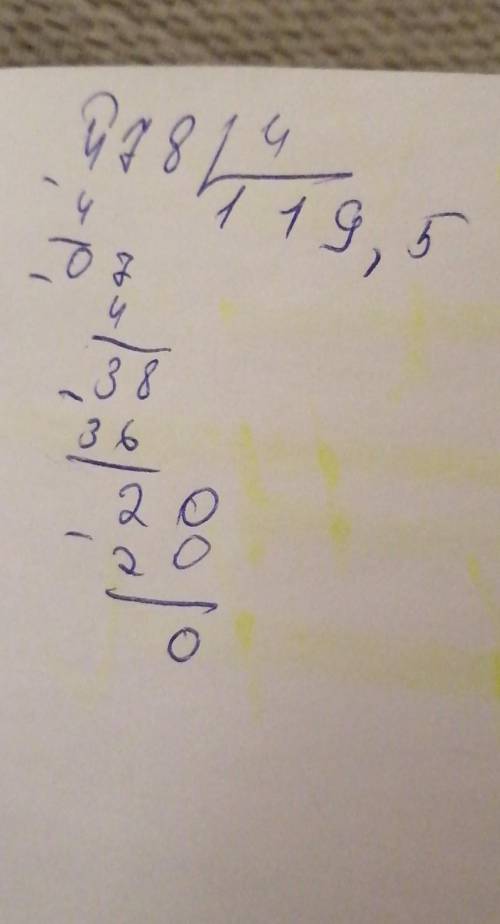 478 | 4
- 4 119,5
- 07
4
- 38
36
- 20
20
0